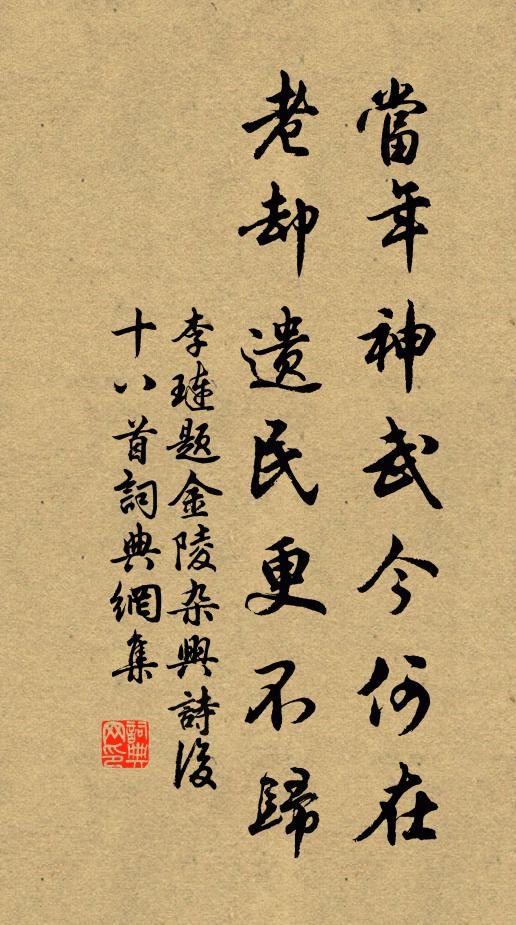 當年神武今何在
老却遺民更不歸
李璉題金陵杂興詩後
十八首詞典網集
詞典
网印